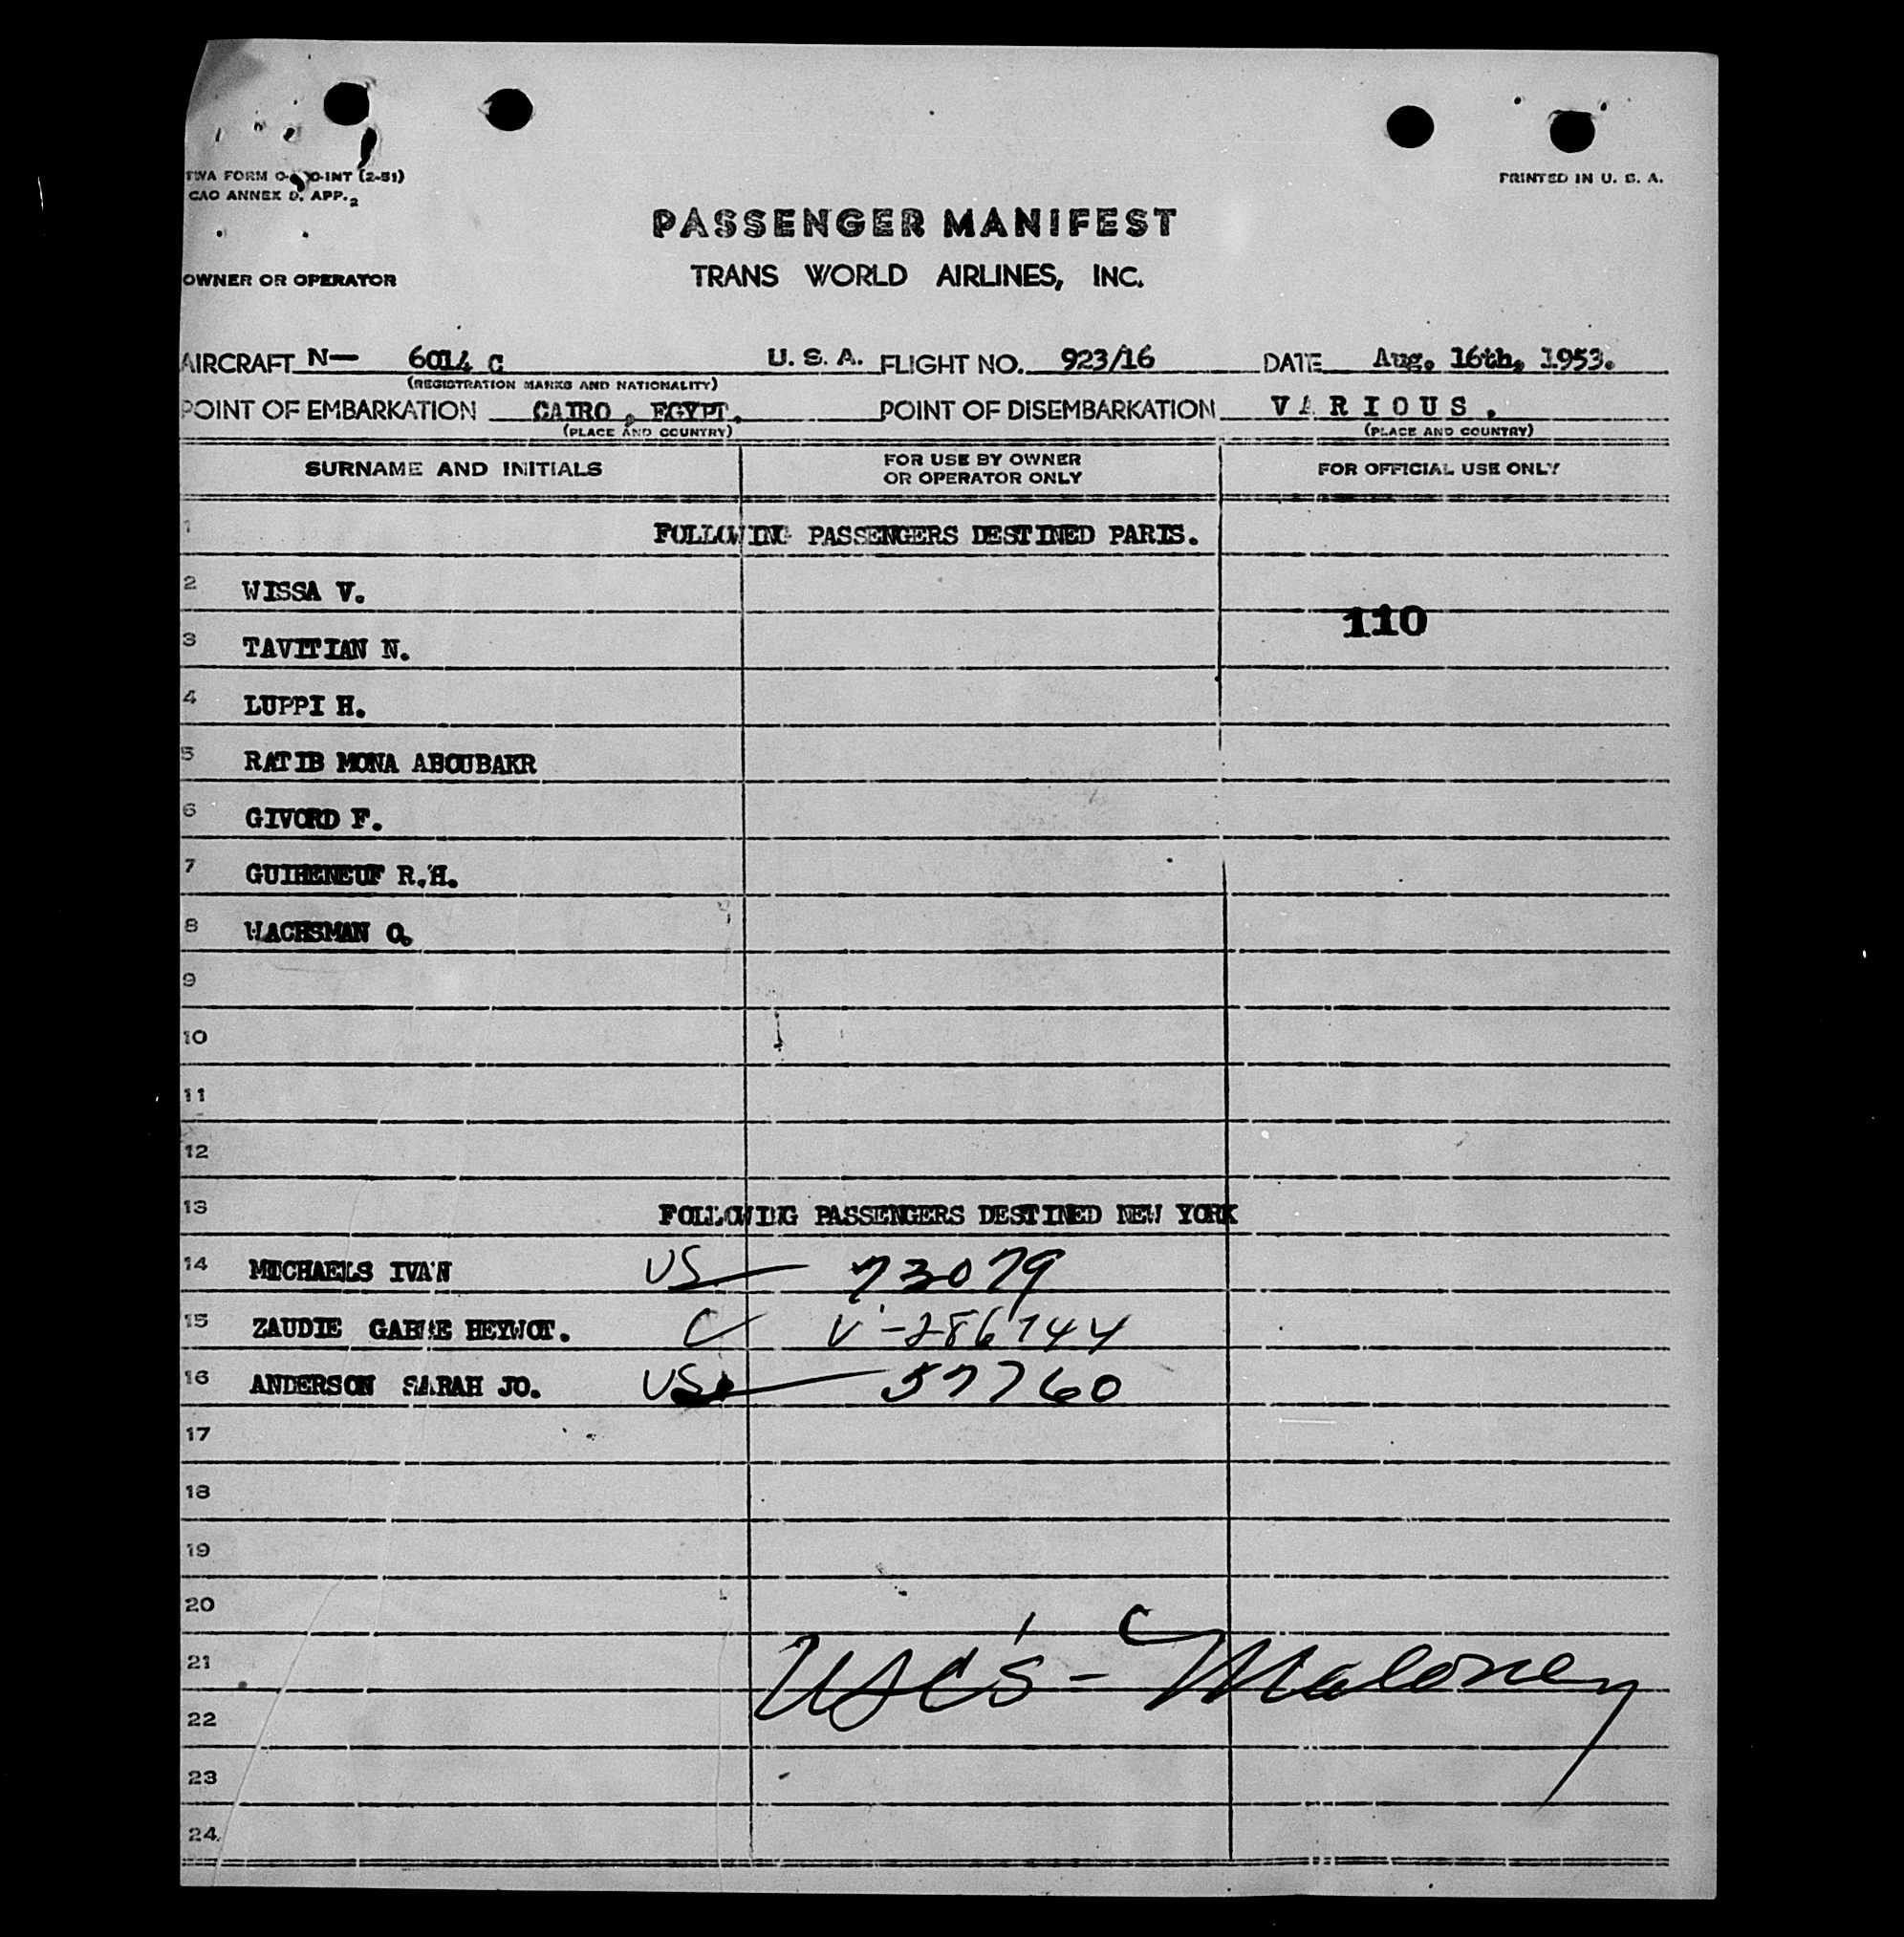 TWA FORM O- O-INT (2-51)
CAO ANNEX 9. APP. 2
PRINTED IN U. S. A.
PASSENGER MANIFEST
OWNER OR OPERATOR TRANS WORLD AIRLINES, INC.
AIRCRAFT N— 6014 C U. S. A. FLIGHT NO. 923/16 DATE Aug. 16th, 1953.
(REGISTRATION MARKS AND NATIONALITY)
POINT OF EMBARKATION CAIRO, EGYPT. POINT OF DISEMBARKATION VARIOUS.
(PLACE AND COUNTRY) (PLACE AND COUNTRY)
SURNAME AND INITIALS FOR USE BY OWNER OR OPERATOR ONLY FOR OFFICIAL USE ONLY
1 FOLLOWING PASSENGERS DESTINED PARIS.
2 WISSA V.
110
3 TAVITIAN N.
4 LUPPI H.
5 RATIB MONA ABOUBAKR
6 GIVORD F.
7 GUIHENEUF R.H.
8 WACHSMAN O.
9
10
11
12
13 FOLLOWING PASSENGERS DESTINED NEW YORK
14 MICHAELS IVAN US 73079
15 ZAUDIE GABRE HEYWOT. C V-286744
16 ANDERSON SARAH JO. US 57760
17
18
19
20
21 USC's - Maloney
22
23
24